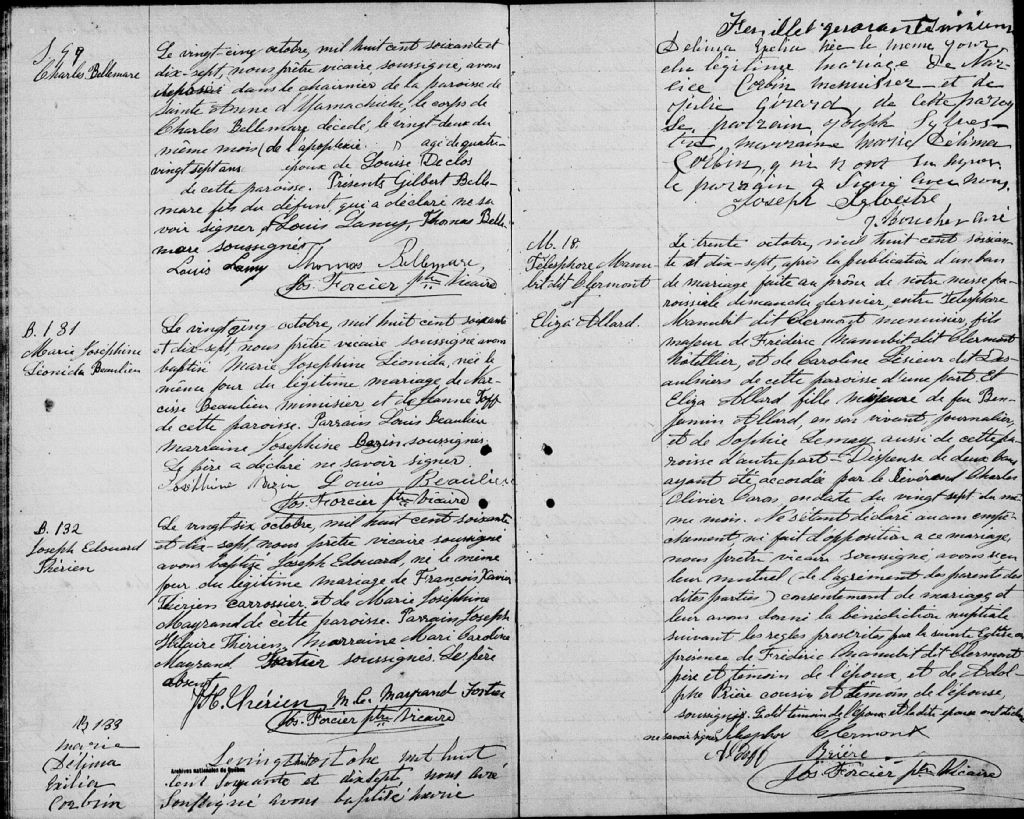 S. 99
Charles Bellemare
Le vingt cinq octobre, mil huit cent soixante et
dix-sept, nous prêtre vicaire soussigné, avons
déposé dans le charnier de la paroisse de
Sainte Anne d'Yamachiche, le corps de
Charles Bellemare décédé, le vingt-deux du
même mois (de l'apoplexie. agé de quatre-
vingt sept ans époux de Louise Declos
de cette paroisse. Présents Gilbert Belle-
mare fils du défunt, qui a déclaré ne sa
voir signer, Louis Lamy, Thomas Belle-
mare soussignés
Louis Lamy Thomas Bellemare,
Jos. Forcier ptre Vicaire
B. 131
Marie Joséphine
Léonida Beaulieu
Le vingt cinq octobre, mil huit cent soixante
et dix-sept, nous prêtre vicaire soussigné avons
baptisé Marie Josephine Leonida, née le
même jour du légitime mariage de Nar-
cisse Beaulieu menuisier et de Jeanne
de cette paroisse. Parrain Louis Beaulieu
marraine Josephine Bazin soussignés.
Le père a déclaré ne savoir signer.
Joséphine Louis Beaulieu
Jos. Forcier ptre Vicaire
B. 132
Joseph Edouard
Thérien
Le vingt six octobre, mil huit cent soixante
et dix-sept, nous prêtre vicaire soussigné
avons baptisé Joseph Edouard, né le même
jour du légitime mariage de François Xavier
Thérien carrossier, et de Marie Joséphine
Mayrand de cette paroisse. Parrain Joseph
Hilaire Thérien, Marraine Marie Caroline
Mayrand Fortier soussignés. Le père
absent.
J. H. Thérien M. C. Mayrand Fortier
Jos. Forcier ptre Vicaire
B 133
Marie
Delima
Exilia
Corbin
Le vingt huit octobre mil huit
cent soixante et dix sept, nous curé
soussigné avons baptisé marie
Archives nationales du Québec
Feuillet quarante
Delima Exilia née le même jour
du légitime mariage de Nar-
cice Corbin menuisier et de
Julie Girard, de cette parois
se, parrain Joseph Sylves
tre, marraine Marie Délima
Corbin, qui n'ont su signer
le parrain a signé avec nous.
Joseph Sylvestre
J. Boucher curé
M. 18.
Télesphore Manu-
bit dit Clermont
et
Eliza Allard.
Le trente octobre, mil huit cent soixan-
te et dix-sept, après la publication d'un ban
de mariage faite au prône de notre messe pa-
roissiale dimanche dernier, entre Télesphore
Manubit dit Clermont menuisier, fils
majeur de Frédéric Manubit dit Clermont
hôtellier, et de Caroline Lésieur dit Des-
aulniers de cette paroisse d'une part. Et
Eliza Allard fille majeure de feu Ben-
jamin Allard, en son vivant, journalier,
et de Sophie Lemay aussi de cette pa-
roisse d'autre part - Dispense de deux bans
ayant été accordée par le Révérend Charles
Olivier Caron en date du vingt sept du mê-
me mois. Ne s'étant déclaré aucun empê-
chement, ni fait d'opposition a ce mariage,
nous prêtre vicaire soussigné, avons reçu
leur mutuel (de l'agrément des parents des
dites parties) consentement de mariage, et
leur avons donné la bénédiction nuptiale
suivant les règles prescrites par la sainte Eglise en
présence de Frédéric Manubit dit Clermont
père et témoin de l'époux, et de Adol-
phe Brière cousin et témoin de l'épouse,
soussignés. Le dit témoin de l'époux et la dite épouse ont déclaré
ne savoir signer. Télesphor Clermont
Brière
Jos Forcier ptre Vicaire